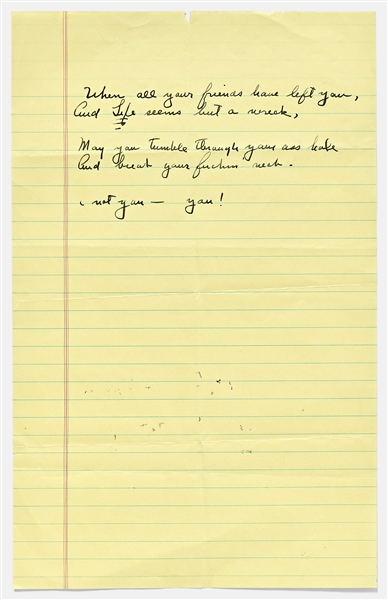 When all your friends have left you,
And Life seems but a wreck,
May you tumble through your ass hole
And break your fuckin' neck.
not you — you!